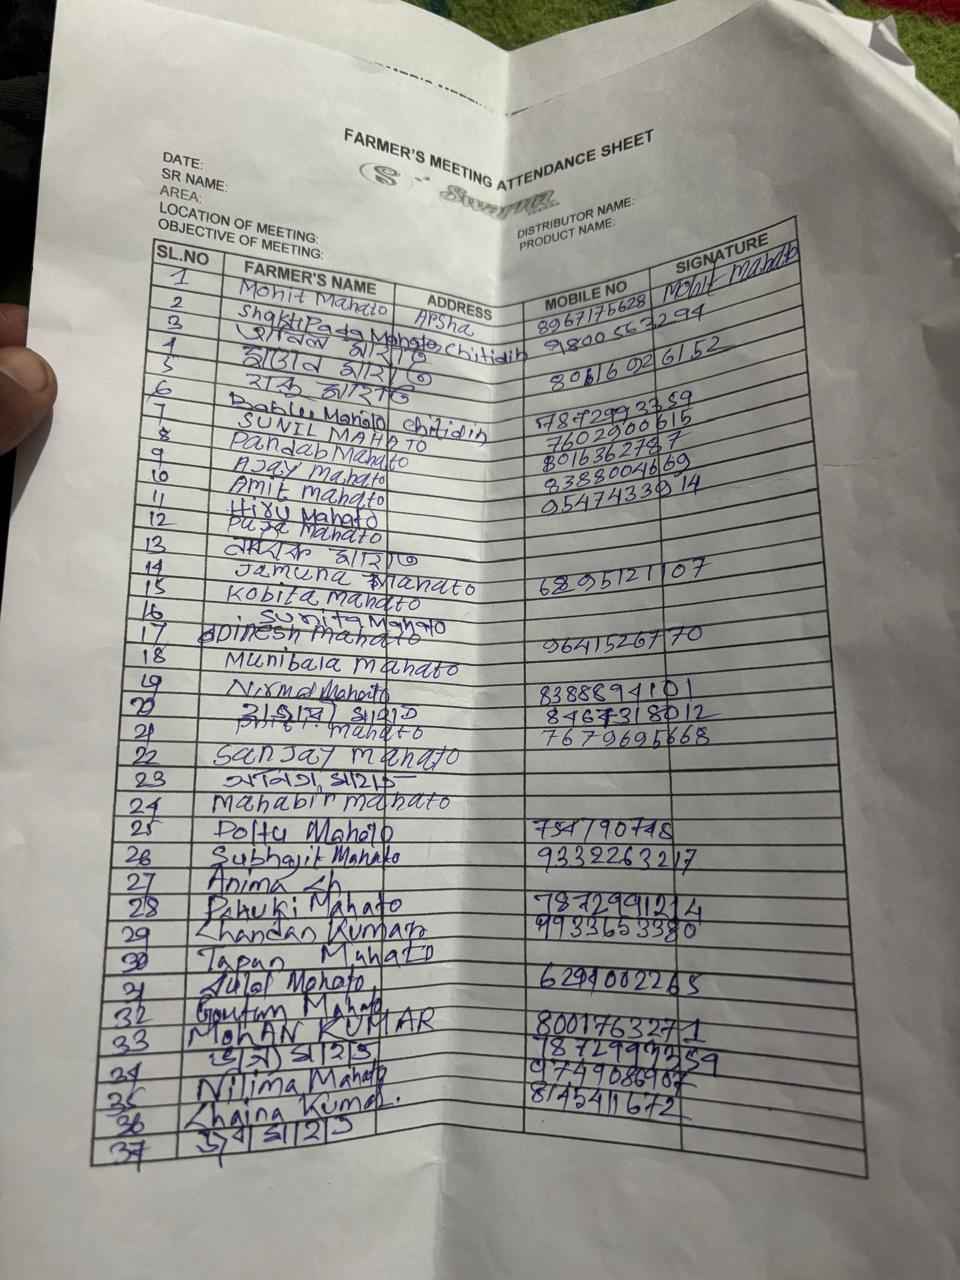 FARMER'S MEETING ATTENDANCE SHEET
DATE:
SR NAME:
AREA:
LOCATION OF MEETING:
OBJECTIVE OF MEETING:
DISTRIBUTOR NAME:
PRODUCT NAME:
SL.NO FARMER'S NAME ADDRESS MOBILE NO SIGNATURE
1 Mohit Mahato Apsha 8967175628 Mohit Mahato
2 ShaktiPada Mahato Chitidin 9800563294
3 মাহাত
4 মাহাত 8016026152
5 মাহাত
6 Bablu Mahato chitidin 7872993359
7 SUNIL MAHATO 7602900615
8 Pandab Mahato 8016362787
9 AJay mahato 8388004669
10 Amit mahato 9547433914
11 Hiru Mahato
12 Mahato
13 মাহাত
14 Jamuna Mahato 6895121107
15 Kobita mahato
16 Sunita Mahato
17 Dinesh mahato 9641526770
18 Munibala mahato
19 Nirmal Mahato 8388894101
20 মাহাত 8467318012
21 mahato 7679695668
22 SanJay mahato
23 মাহাত
24 Mahabir mahato
25 Poltu Mahato 754790748
26 Subhajit Mahato 9332263217
27 Anima
28 Mahato 7872991214
29 Chandan Kumar 9933653380
30 Tapan Mahato
31 Mahato 6294002265
32 Goutam Mahato
33 MOHAN KUMAR 8001763271
34 মাহাত 7872993359
35 Nilima Mahato 9749086907
36 Kumar. 8145411672
37 মাহাত